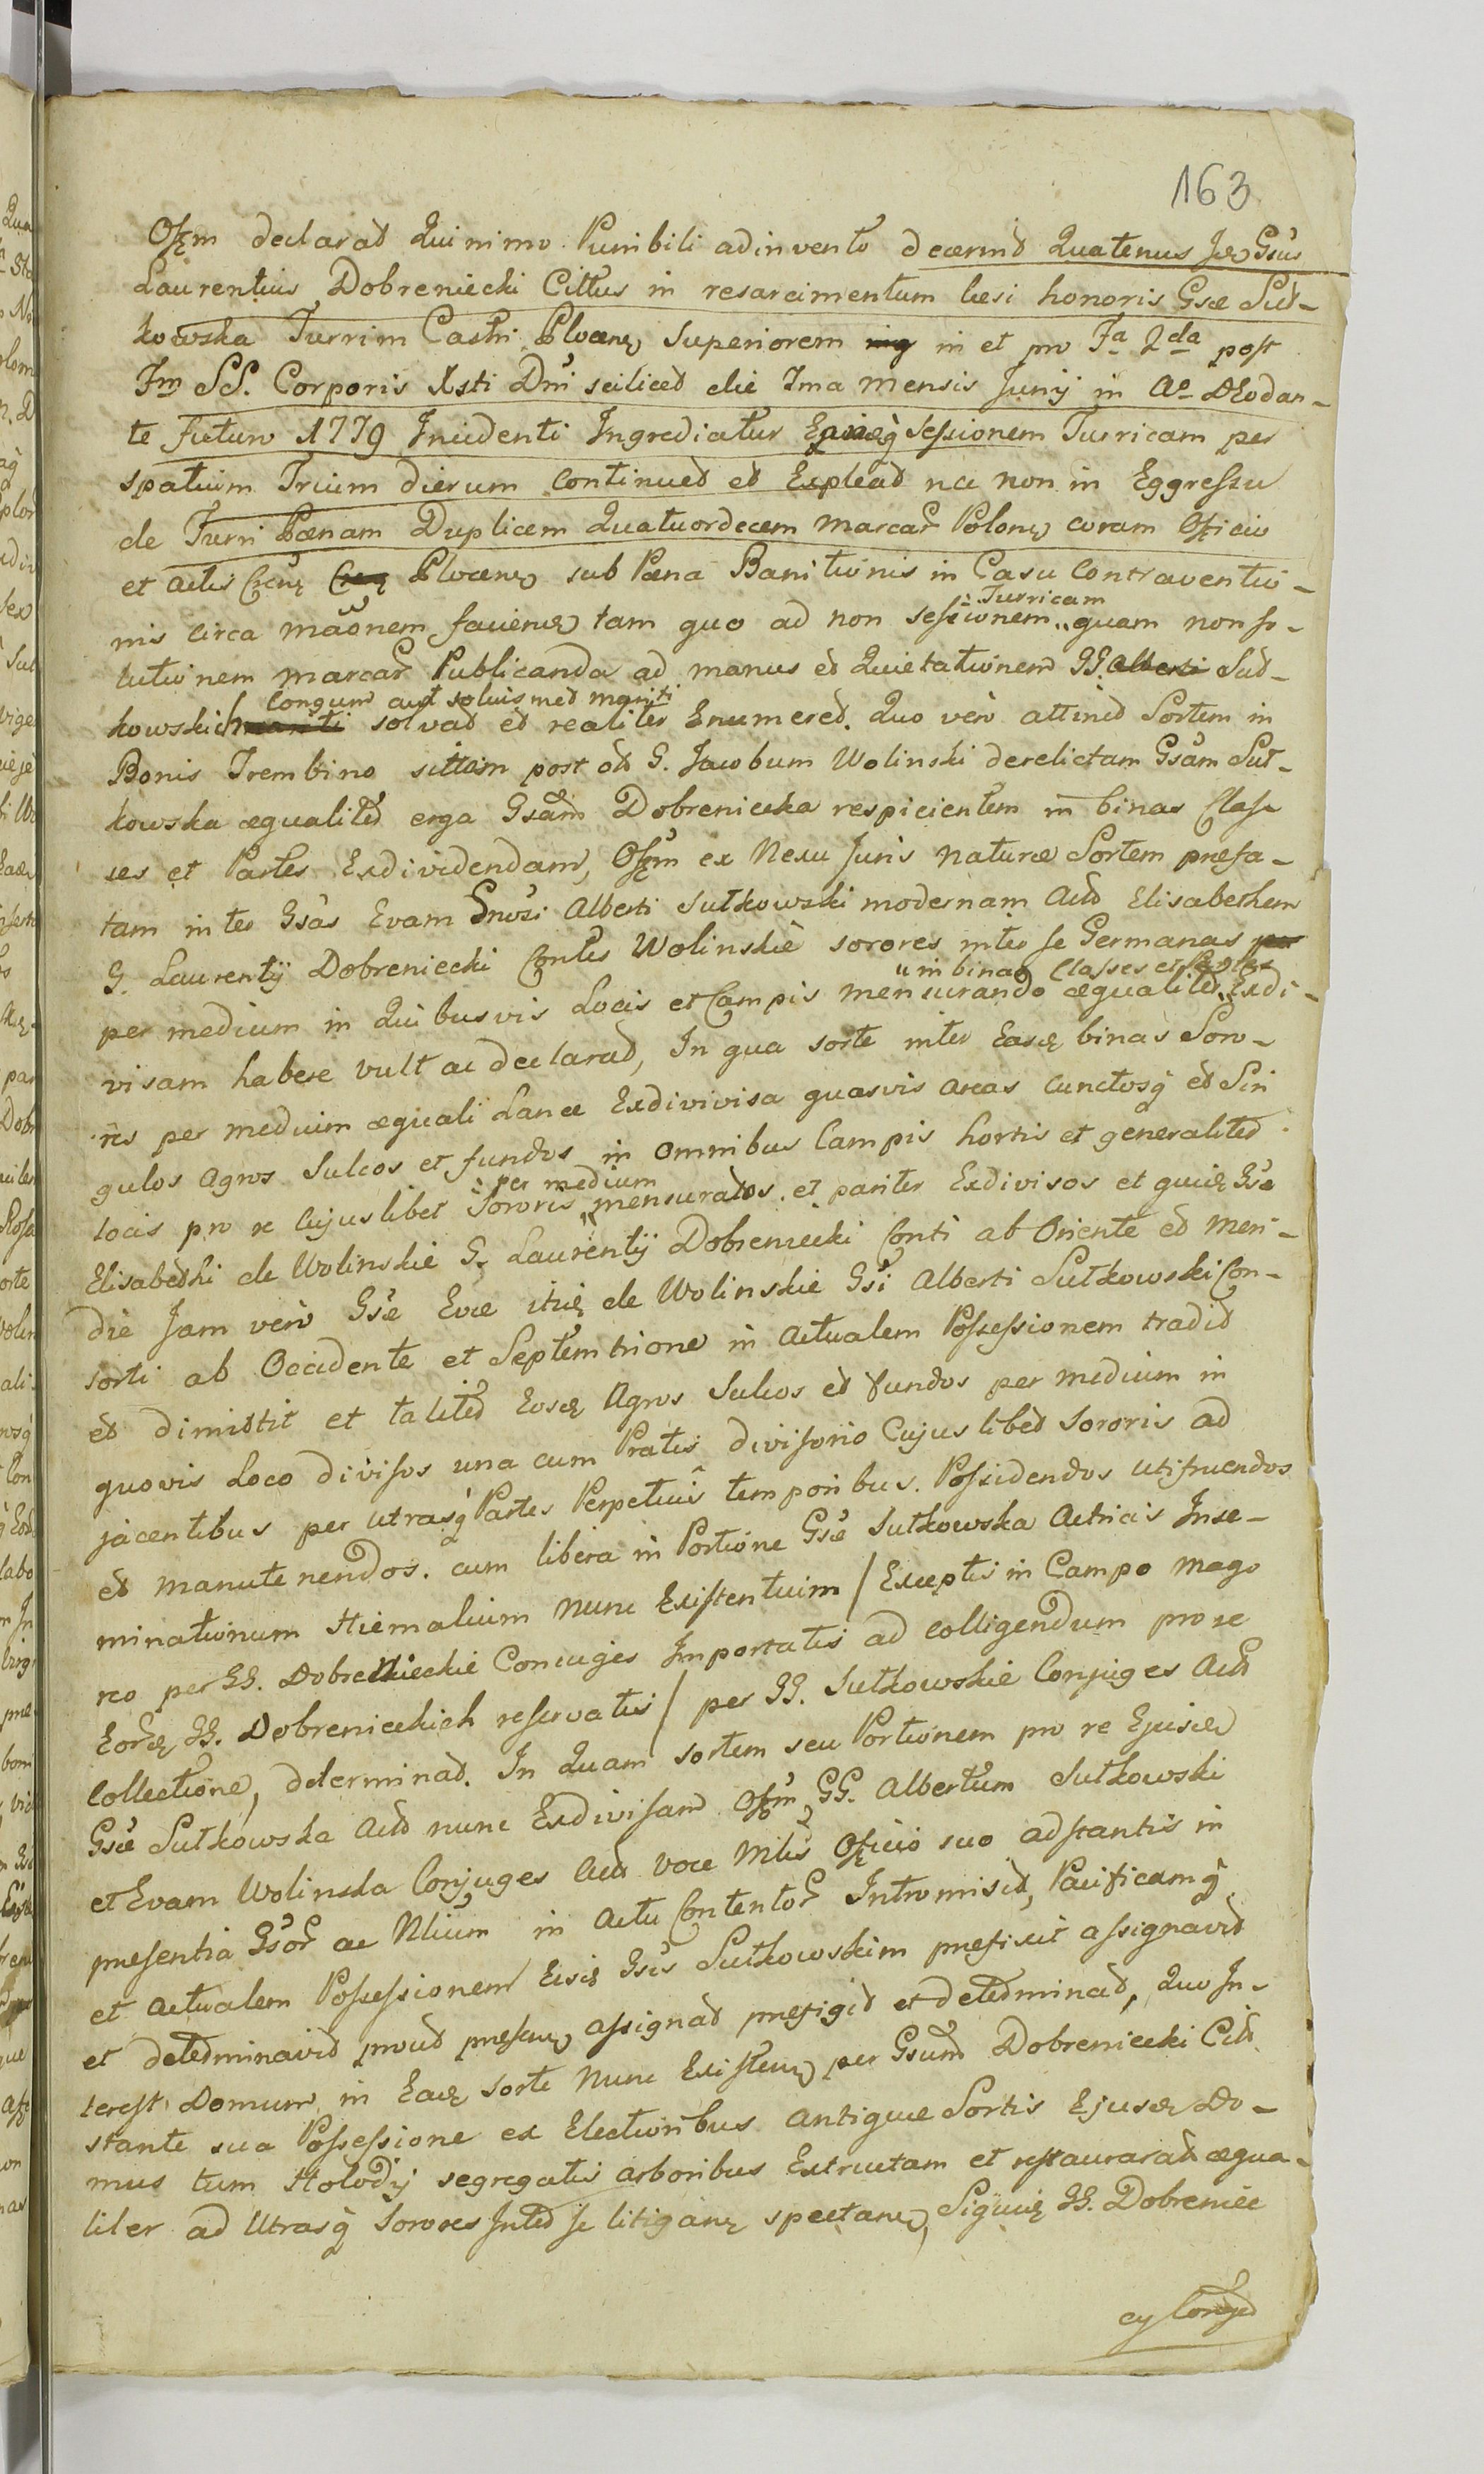 163
Offm declarat Quinimo Punibili adinvento decernit Quatenus Idem Gsus
Laurentius Dobreniecki Cittus in resarcimentum læsi honoris Gsæ Sut-
kowska Turrim Castri Plocen Superiorem in et pro Fa 2da post
Fm SS. Corporis Xsti Dni scilicet die Ima mensis Junij in Ao Deodan-
te Futuro 1779 Incidenti Ingrediatur Sessionem Turricam per
spatium Trium dierum continuet et Expleat nec non in Eggressu
de Turri Pœnam Duplicem Quatuordecem marcar Polon coram Officio
et actis Plocen sub Pœna Banitionis in Casu Contraventio-
nis circa maonem faciend tam quo ad non sessionem Turricam quam non so-
lutionem marcar Publicanda ad manus et Quietationem GG. Alberti Sut-
kowskich mariti solvat et realiter Enumeret. Quo vero attinet Sortem in
Bonis Trembino sittam post olt G. Jacobum Wolinski derelictam Gsam Sut-
kowska æqualiter erga Gsam Dobreniecka respicientem in binas Clas-
ses et Partes Exdividendam, Offm ex Nexu Juris naturæ Sortem præfa-
tam inter Gsas Evam Gnosi Alberti Sutkowski modernam Actt Elisabetham
G. Laurentij Dobreniecki Contes Wolinskie sorores inter se Germanas per
per medium in Quibusvis Locis et Campis mensurando æqualiter in binas Classes et Partes Exdi-
visam habere vult ac declarat, In qua sorte inter Easd binas Soro-
res per medium æquali Lance Exdivivisa quasvis areas cunctosq et Sin
gulos Agros Sulcos et fundos in omnibus Campis hortis et generaliter
locis pro re Cujuslibet Sororis per medium mensuratos et pariter Exdivisos et quid Gsæ
Elisabethi de Wolinskie G. Laurentij Dobreniecki Conti ab Oriente et Meri-
die Jam vero Gsæ Evæ itid de Wolinskie Gsi Alberti Sutkowski Con-
sorti ab Occidente et Septemtrione in actualem Possessionem tradid
et dimittit et taliter Eosd Agros Sulcos et fundos per medium in
quovis Loco divisos una cum Pratis divisorio Cujuslibet Sororis ad
jacentibus per utrasq Partes Perpetuis temporibus Possidendos utifruendos
et manutenendos. cum libera in Portione Gsæ Sutkowska Actricis Inse-
minationum Hiemalium nunc Existentium / Exceptis in Campo mago
reo per GG. Dobrenieckie Coniuges Importatis ad colligendum pro re
Eord GG. Dobrenieckich reservatis / per GG. Sutkowskie Conjuges Actt
Collectione, determinat. In Quam sortem seu Portionem pro re Ejusd
Gsæ Sutkowska Actt nunc Exdivisam Offm GG. Albertum Sutkowski
et Evam Wolinska Conjuges Actt voce Mlis Officio suo adstantis in
præsentia Gsor ac Nlium in actu Contentor Intromisit, Pacificamq
et actualem Possessionem Eisd Gsis Sutkowskim præfixit assignavit
et determinavit prout præsen assignat præfigit et determinat, Quo In-
terest Domum in Ead sorte nunc Existen per Gsum Dobreniecki Citt
stante sua Possessione ex Electionibus antiquæ Sortis Ejusd Do-
mus tum Stolodij segregatis arboribus Extructam et restaurarat æqua-
liter ad Utrasq Sorores Inter se litigan spectan, Siquid GG. Dobreniec
cy Conjed